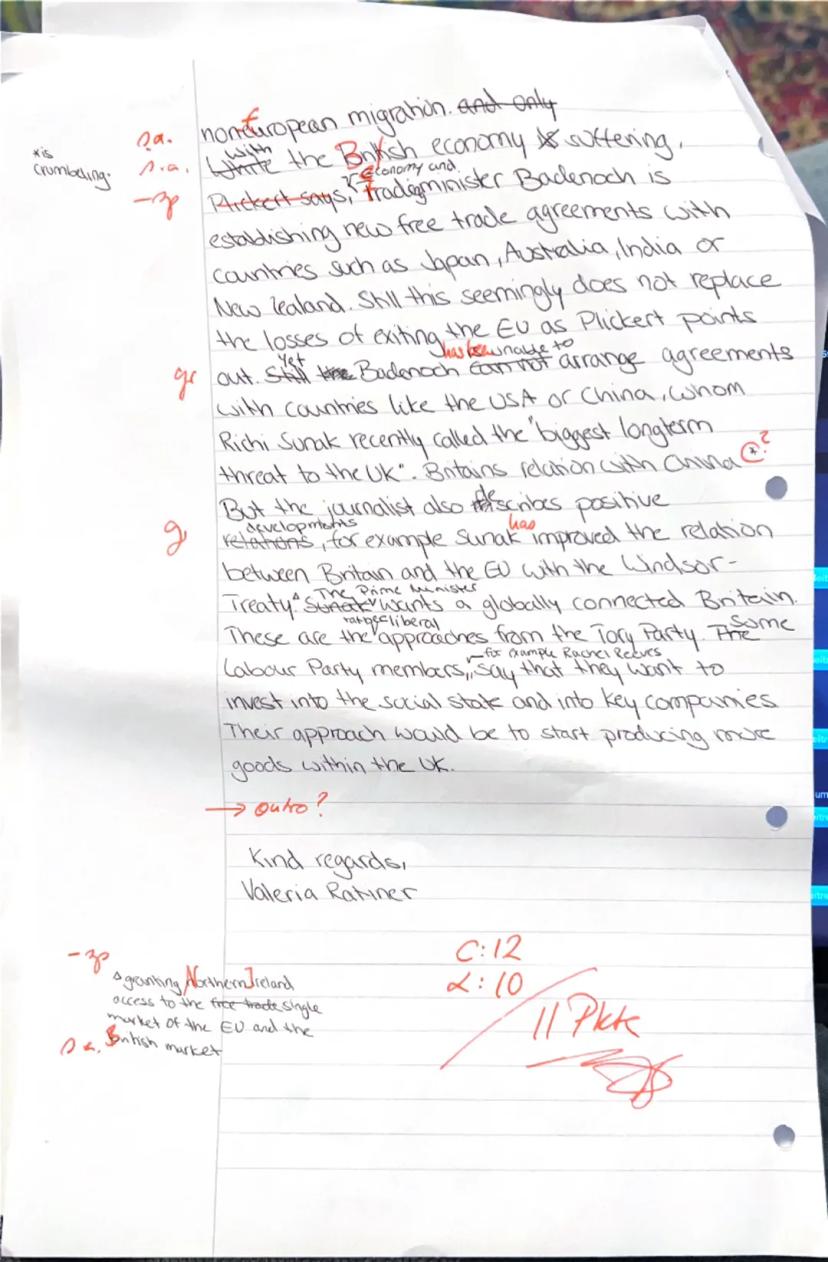 non-European migration. and only
s.a.
*is crumbeling.
s.a.
While with the British economy is suffering.
-zp
Plickert says, Economy and Trademinister Badenoch is
establishing new free trade agreements with
countries such as Japan, Australia, India or
New Zealand. Still this seemingly does not replace
the losses of exiting the EU as Plickert points
gr
out. Still the Yet Badenoch can not has been unable to arrange agreements
with countries like the USA or China, whom
Richi Sunak recently called the "biggest longterm
threat to the UK". Britains relation with China * ?
But the journalist also describes positive
g
relations developments, for example Sunak has improved the relation
between Britain and the EU with the Windsor-
Treaty. Sunak The Prime Minister wants a globally connected Britain.
These are the rather liberal approaches from the Tory Party. The Some
Labour Party members, for example Rachel Reeves, say that they want to
invest into the social state and into key companies
Their approach would be to start producing more
goods within the UK.
→ Outro?
Kind regards,
Valeria Ratiner
-zp
granting Northern Ireland
access to the free trade single
market of the EU and the
s.a.
British market
C: 12
L: 10
11 Pkte